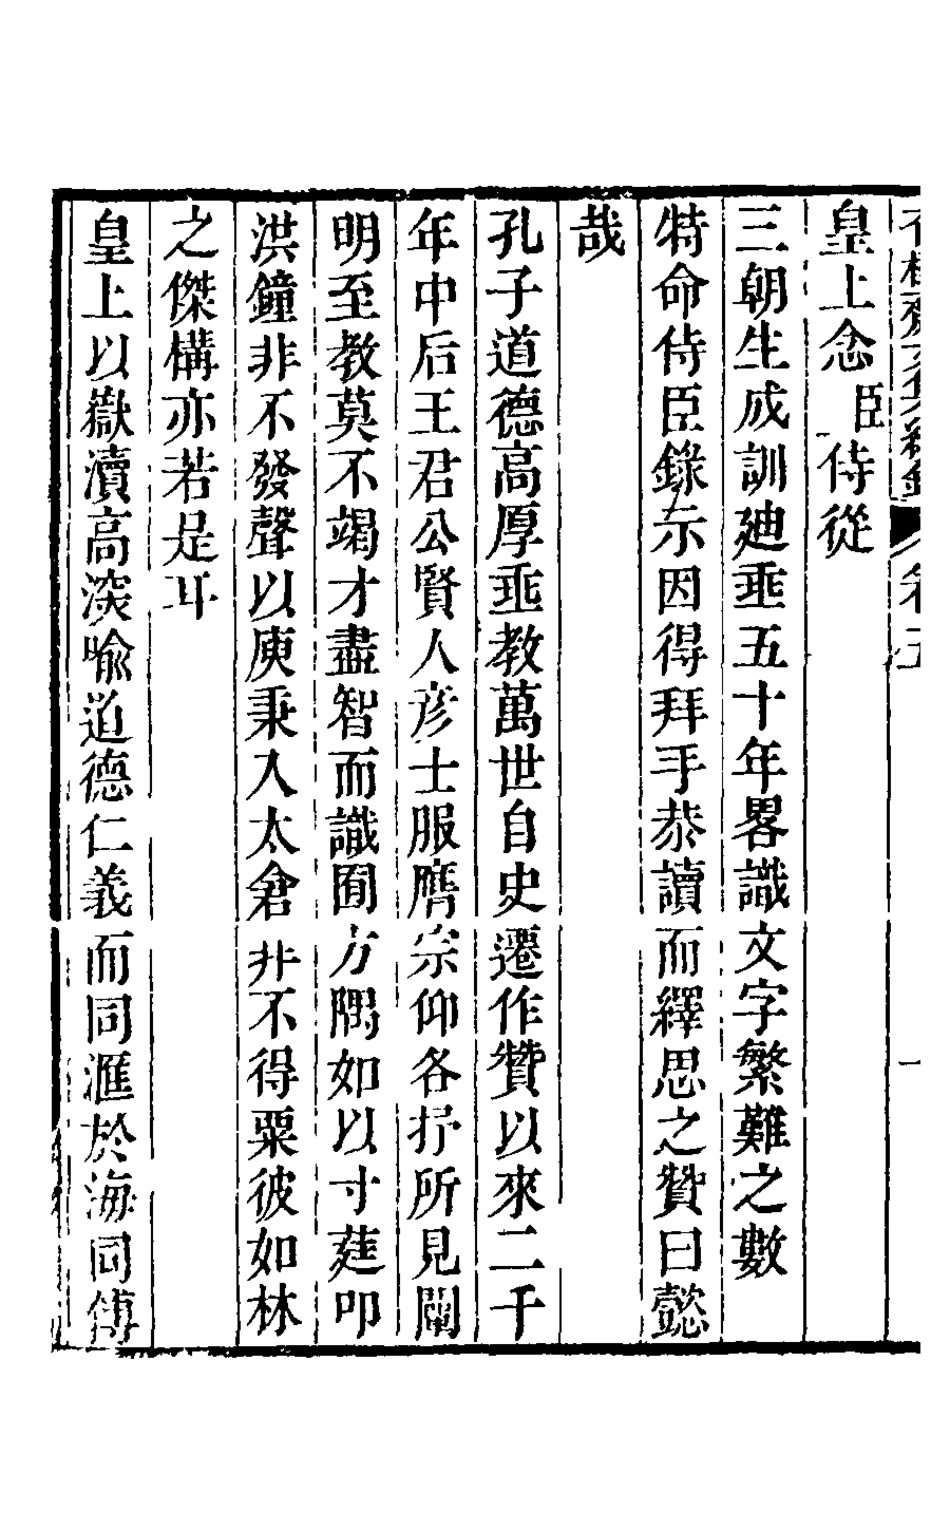 皇上念臣侍從
三朝生成訓廸垂五十年畧識文字繁難之數
特命侍臣錄示因得拜手恭讀而繹思之贊曰懿
哉
孔子道德高厚垂教萬世自史遷作贊以來二千
年中后王君公賢人彥士服膺宗仰各抒所見闡
明至教莫不竭才盡智而識囿方隅如以寸莛叩
洪鐘非不發聲以庾秉入太倉非不得粟彼如林
之傑構亦若是耳
皇上以嶽瀆高深喻道德仁義而同滙於海同傅